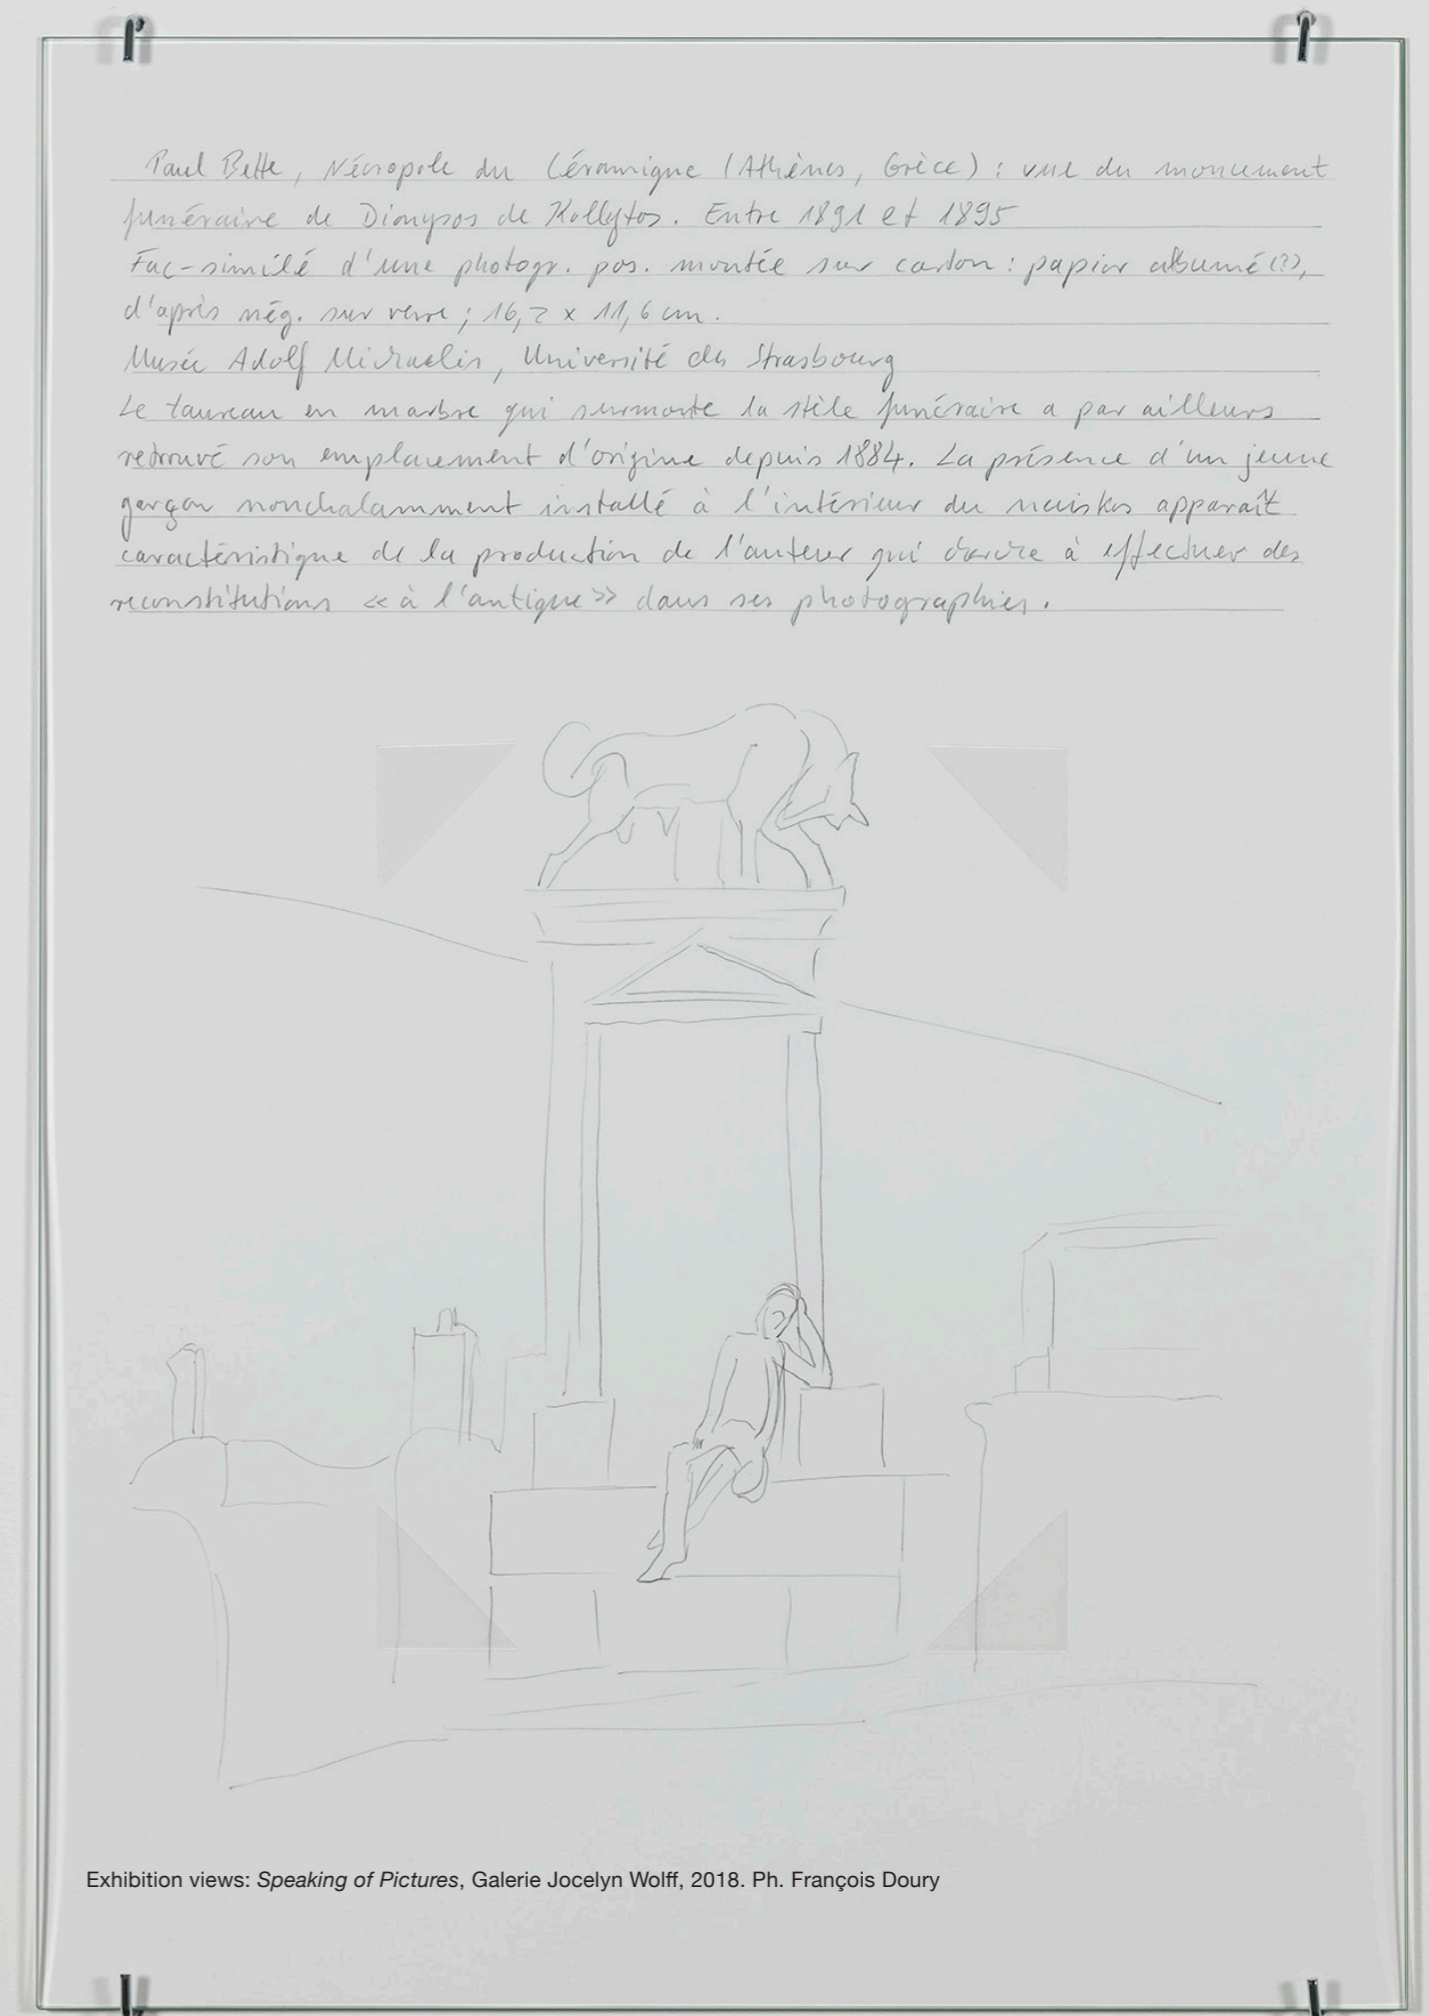 Paul Bette, Nécropole du Céramique (Athènes, Grèce) : vue du monument
funéraire de Dionysos de Kollytos. Entre 1891 et 1895
Fac-similé d'une photogr. pos. montée sur carton : papier albumé (?),
d'après nég. sur verre ; 16,2 x 11,6 cm.
Musée Adolf Michaelis, Université de Strasbourg
Le taureau en marbre qui surmonte la stèle funéraire a par ailleurs
retrouvé son emplacement d'origine depuis 1884. La présence d'un jeune
garçon nonchalamment installé à l'intérieur du naiskos apparaît
caractéristique de la production de l'auteur qui à effectuer des
reconstitutions « à l'antique » dans ses photographies.
Exhibition views: Speaking of Pictures, Galerie Jocelyn Wolff, 2018. Ph. François Doury